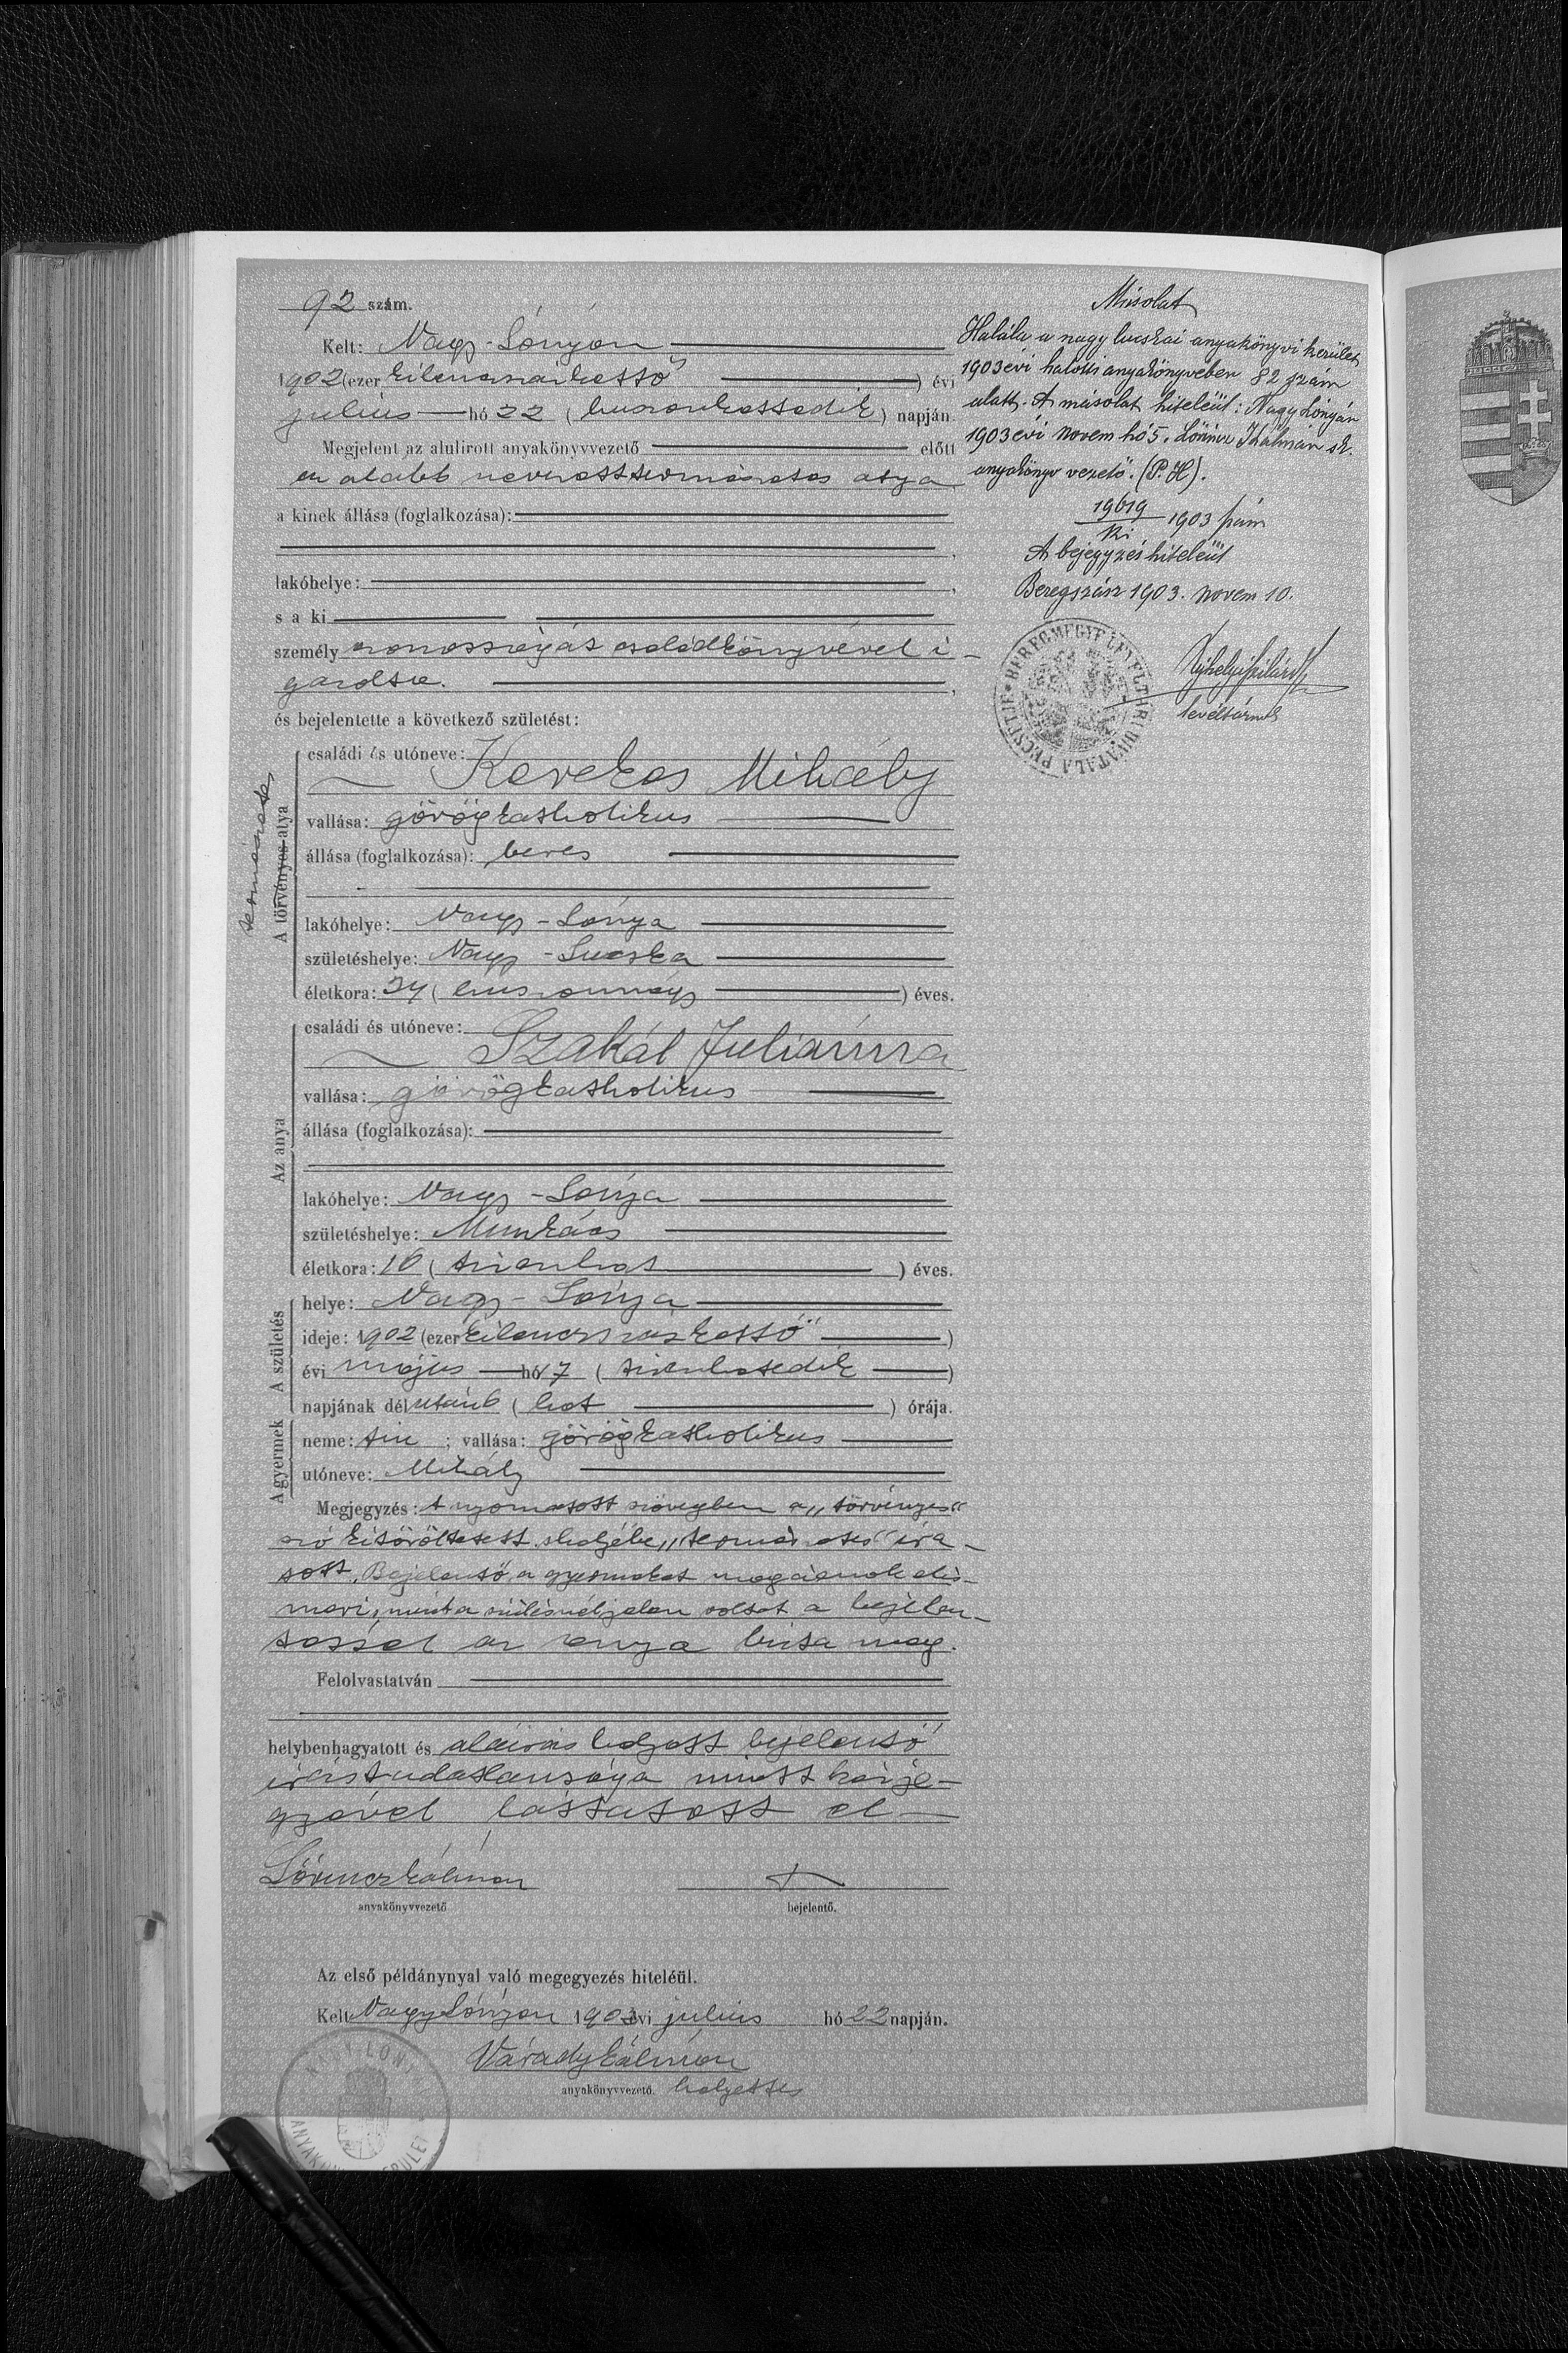 92 szám.
Kelt: Nagy-Lónyán
1902 (ezer kilenczszázkettő) évi
julius hó 22 (huszonkettedik) napján.
Megjelent az alulirott anyakönyvvezető előtt
az alább nevezett természetes atya
a kinek állása (foglalkozása):
lakóhelye:
s a ki
személy azonosságát családkönyvével i-
gazolta.
és bejelentette a következő születést:
A törvényes atya
természetes
családi és utóneve:
Kerekes Mihály
vallása: görögkatholikus
állása (foglalkozása): béres
lakóhelye: Nagy-Lónya
születéshelye: Nagy-Lucska
életkora: 24 (huszonnégy) éves.
Az anya
családi és utóneve:
Szakál Juliánna
vallása: görögkatholikus
állása (foglalkozása):
lakóhelye: Nagy-Lónya
születéshelye: Munkács
életkora: 16 (tizenhat) éves.
A születés
helye: Nagy-Lónya
ideje: 1902 (ezer kilenczszázkettő)
évi május hó 17 (tizenhetedik)
napjának délutánb (hat) órája.
A gyermek
neme: fiu; vallása: görögkatholikus
utóneve: Mihály
Megjegyzés: A nyomatott szövegben a „törvényes"
szó kitöröltetett s helyébe „természetes" ira-
tott. Bejelentő a gyermeket magáénak elis-
meri, mint a szülésnél jelen voltat a bejelen-
téssel az anya bizta meg.
Felolvastatván
helybenhagyatott és aláirás helyett bejelentő
irástudatlansága miatt kézje-
gyével láttatott el
Lőrincz Kálmán
anyakönyvvezető
bejelentő.
Az első példánynyal való megegyezés hiteléül.
Kelt Nagy Lónyán 1902 évi julius hó 22 napján.
Várady Kálmán
anyakönyvvezető. helyettes
Másolat
Halála a nagy lucskai anyakönyvi kerület
1903 évi halotti anyakönyvében 82 szám
alatt. A másolat hiteléül: Nagy Lónyán
1903 évi novem hó 5. Lőrincz Kálmán sk.
anyakönyv vezető. (P. H).
19619
ki 1903 szám
A bejegyzés hiteléül
Beregszász 1903. novem 10.
Ujhelyi Szilárd
levéltárnok
BEREGMEGYE LEVÉLTÁRI HIVATALA PECSÉTJE
NAGY LÓNYA
ANYAKÖNYVI KERÜLET